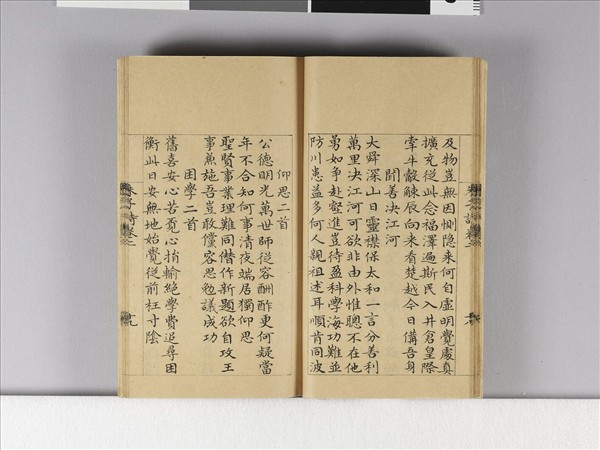 及物豈無因惻隐来何自虚明覺處真
擴充從此念福澤遍斯民入井倉皇際
牽牛觳觫辰向来看楚越今日備吾身
聞善决江河
大舜深山日靈襟保太和一言分善利
萬里决江河可欲非由外惟聰不在他
勇如争赴壑進豈待盈科學海功難並
防川患益多何人親祖述耳順肯同波
仰思二首
公德明光萬世師從容酬酢更何疑當
年不合知何事清夜端居獨仰思
聖賢事業理難同僣作新題欲自攻王
事蕪施吾豈敢儻容思勉議成功
困學二首
舊喜安心苦覓心捐輸絶學費追尋困
衡此日安無地始覺從前枉寸陰